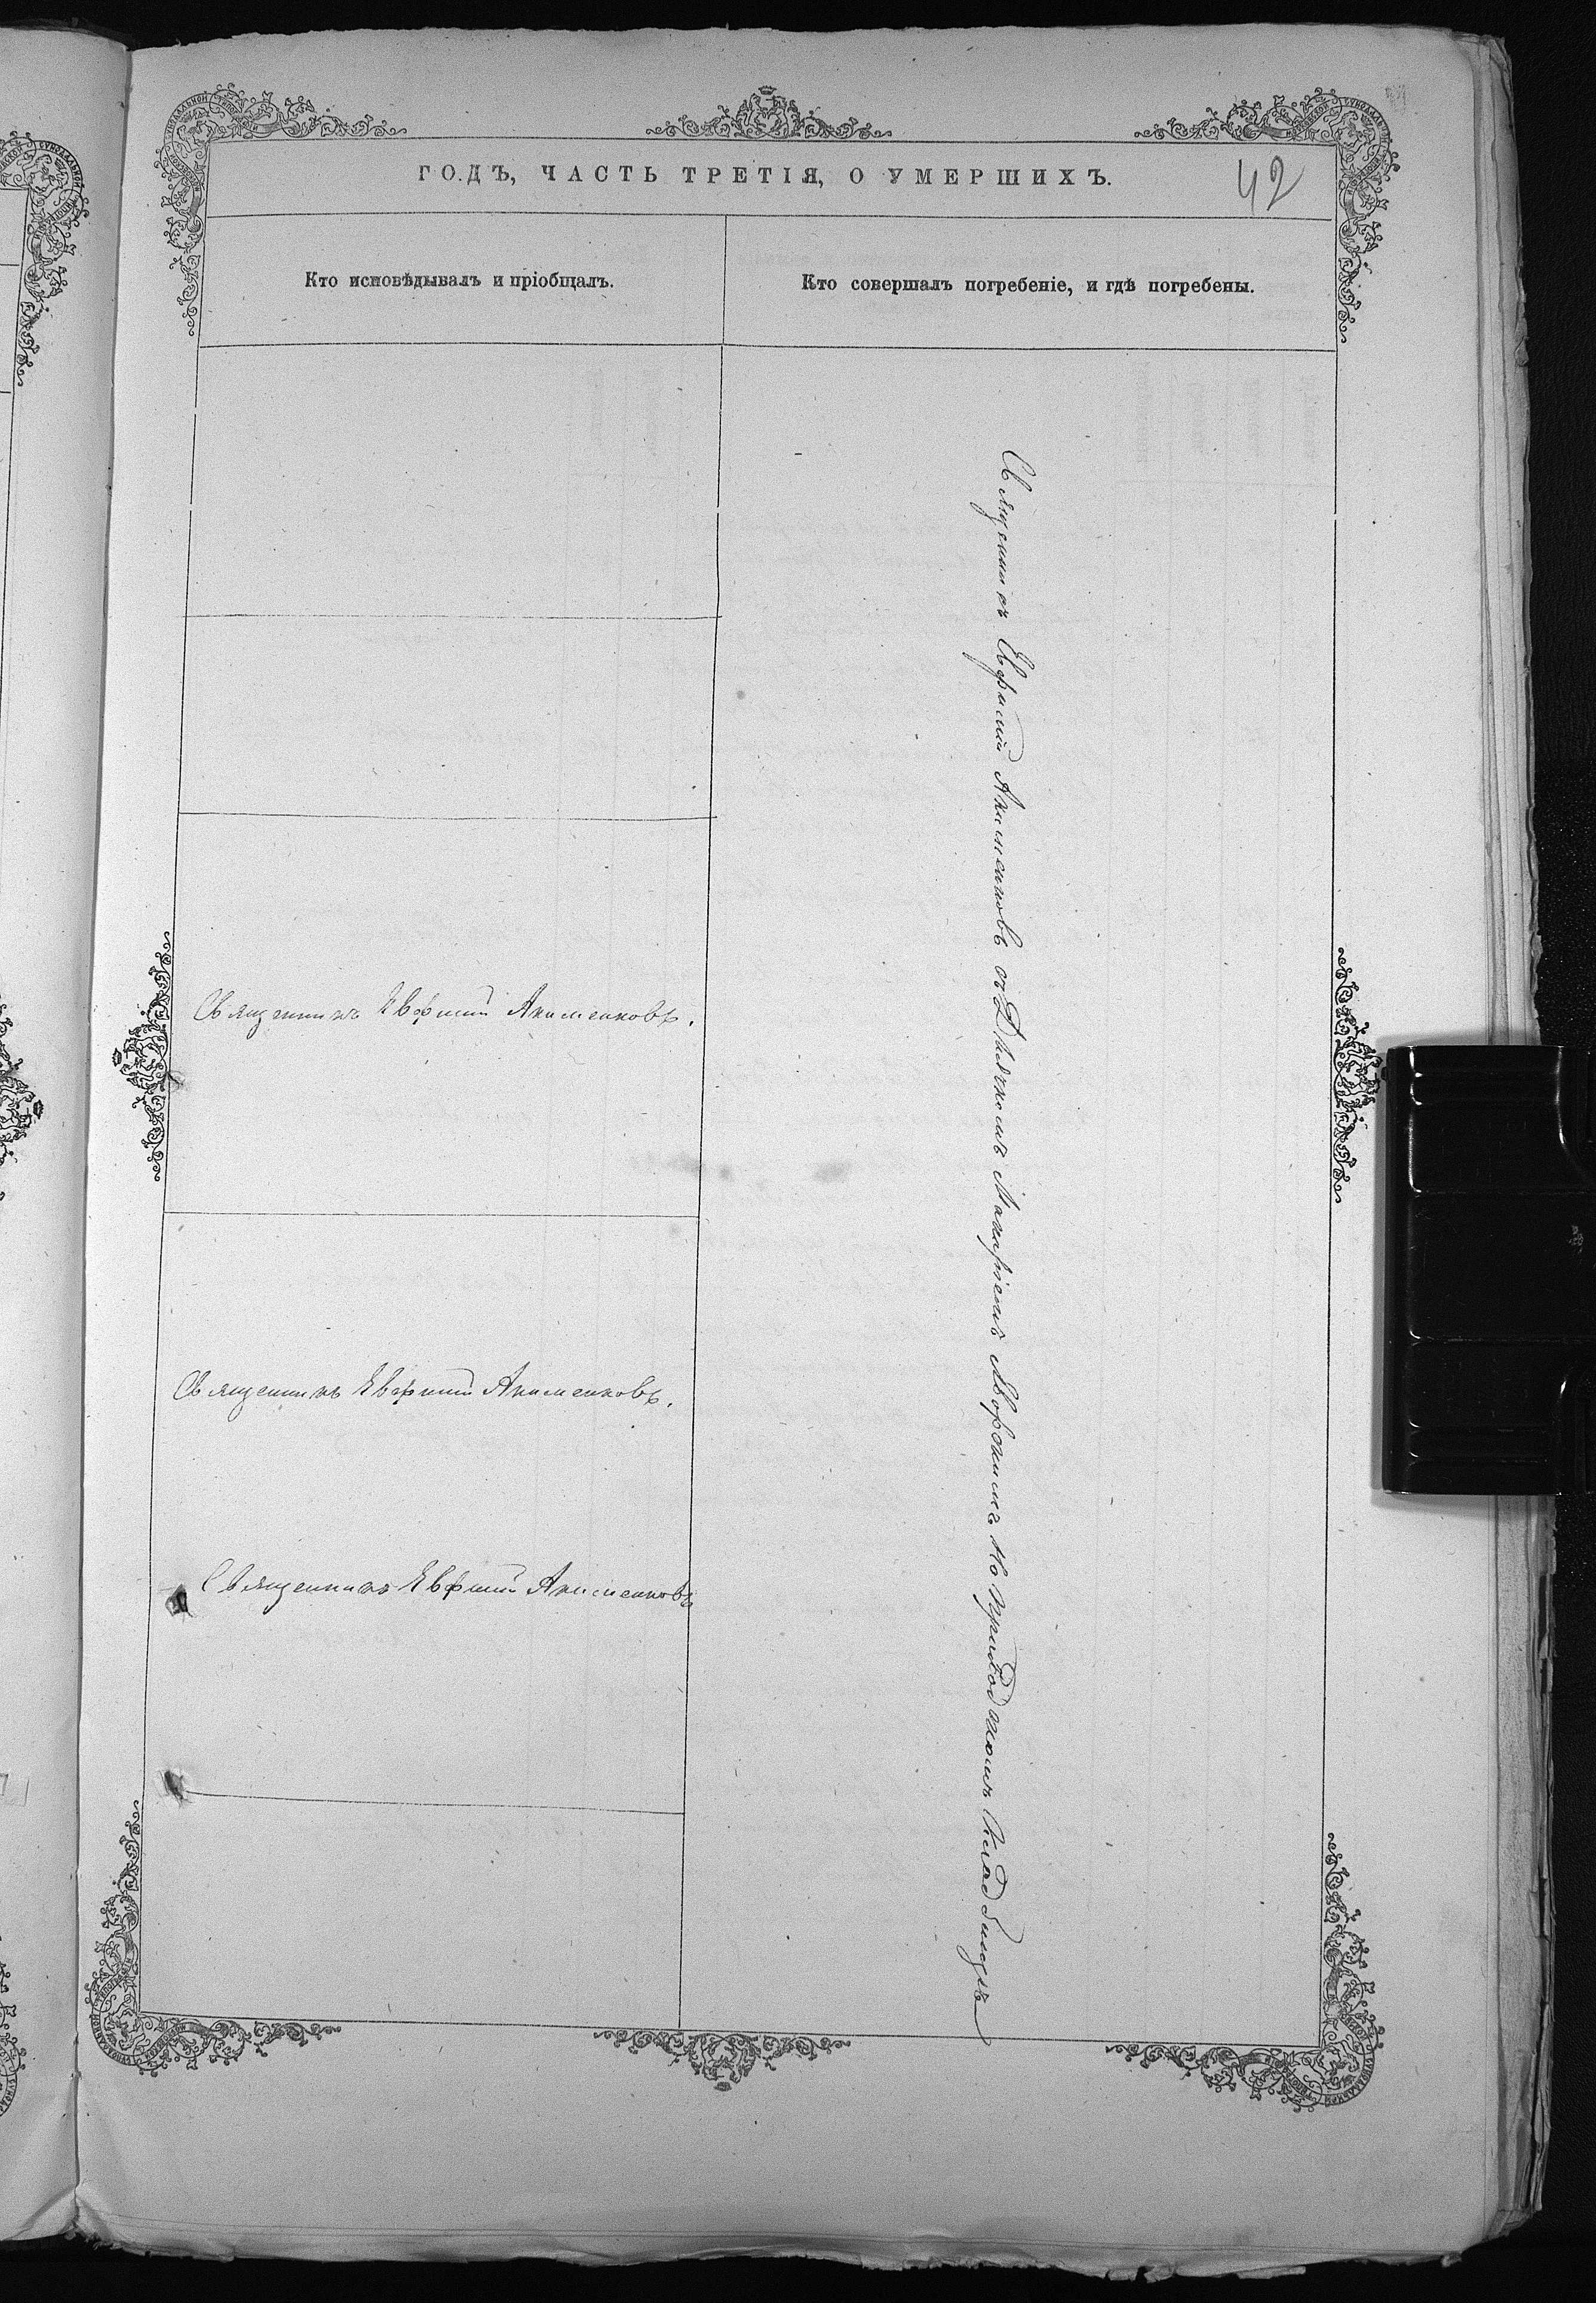 ГОДЪ, ЧАСТЬ ТРЕТІЯ, О УМЕРШИХЪ.
42
Кто исповѣдывалъ и пріобщалъ.
Кто совершалъ погребеніе, и гдѣ погребены.
Священникъ Евфимій Акименковъ.
Священникъ Евфимій Акименковъ.
Священникъ Евфимій Акименковъ
Священникъ Евфимій Акименковъ съ Дьячкомъ Макаріемъ на приходскомъ кладбищѣ